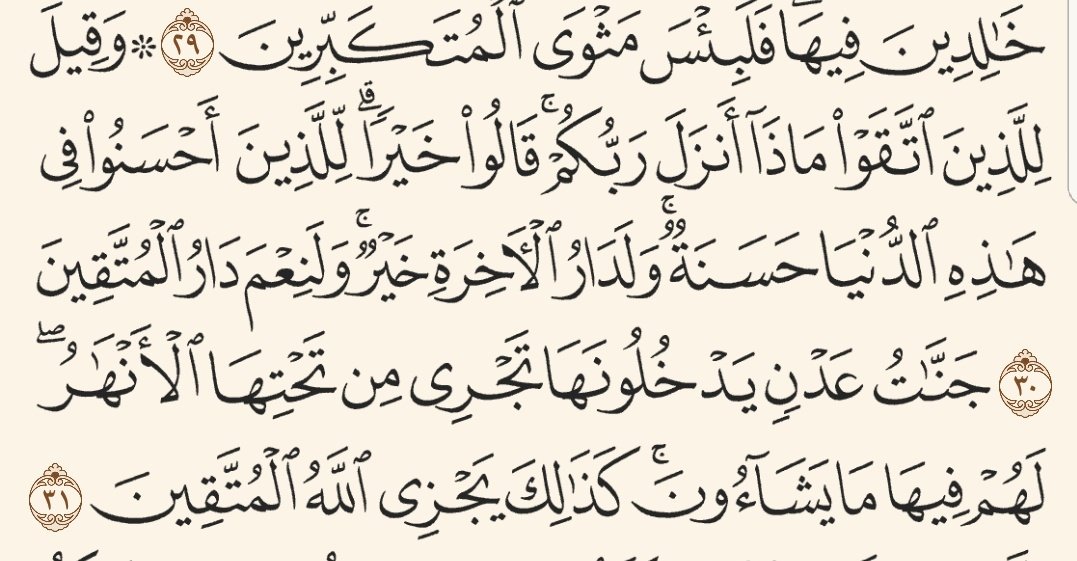 خَٰلِدِينَ فِيهَاۖ فَلَبِئۡسَ مَثۡوَى ٱلۡمُتَكَبِّرِينَ ٢٩ ۞ وَقِيلَ
لِلَّذِينَ ٱتَّقَوۡاْ مَاذَآ أَنزَلَ رَبُّكُمۡۚ قَالُواْ خَيۡرٗاۗ لِّلَّذِينَ أَحۡسَنُواْ فِي
هَٰذِهِ ٱلدُّنۡيَا حَسَنَةٞۚ وَلَدَارُ ٱلۡأٓخِرَةِ خَيۡرٞۚ وَلَنِعۡمَ دَارُ ٱلۡمُتَّقِينَ
٣٠ جَنَّٰتُ عَدۡنٖ يَدۡخُلُونَهَا تَجۡرِي مِن تَحۡتِهَا ٱلۡأَنۡهَٰرُۖ
لَهُمۡ فِيهَا مَا يَشَآءُونَۚ كَذَٰلِكَ يَجۡزِي ٱللَّهُ ٱلۡمُتَّقِينَ ٣١